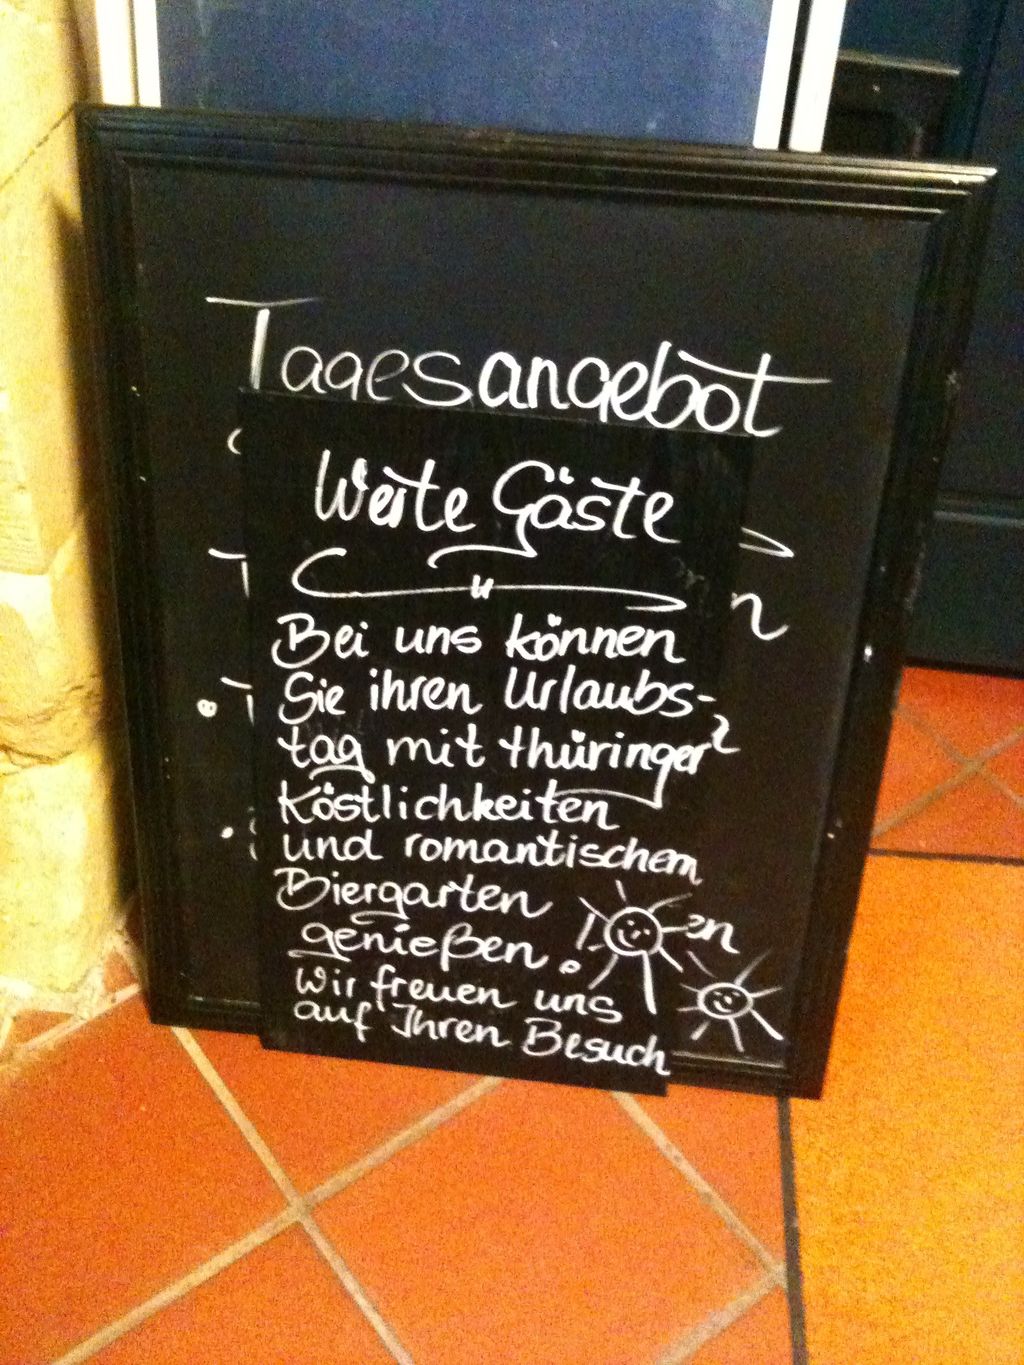 Tagesangebot
Werte Gäste
Bei uns können
Sie ihren Urlaubs-
tag mit thüringer
Köstlichkeiten
und romantischem
Biergarten
genießen!
en
Wir freuen uns
auf Ihren Besuch